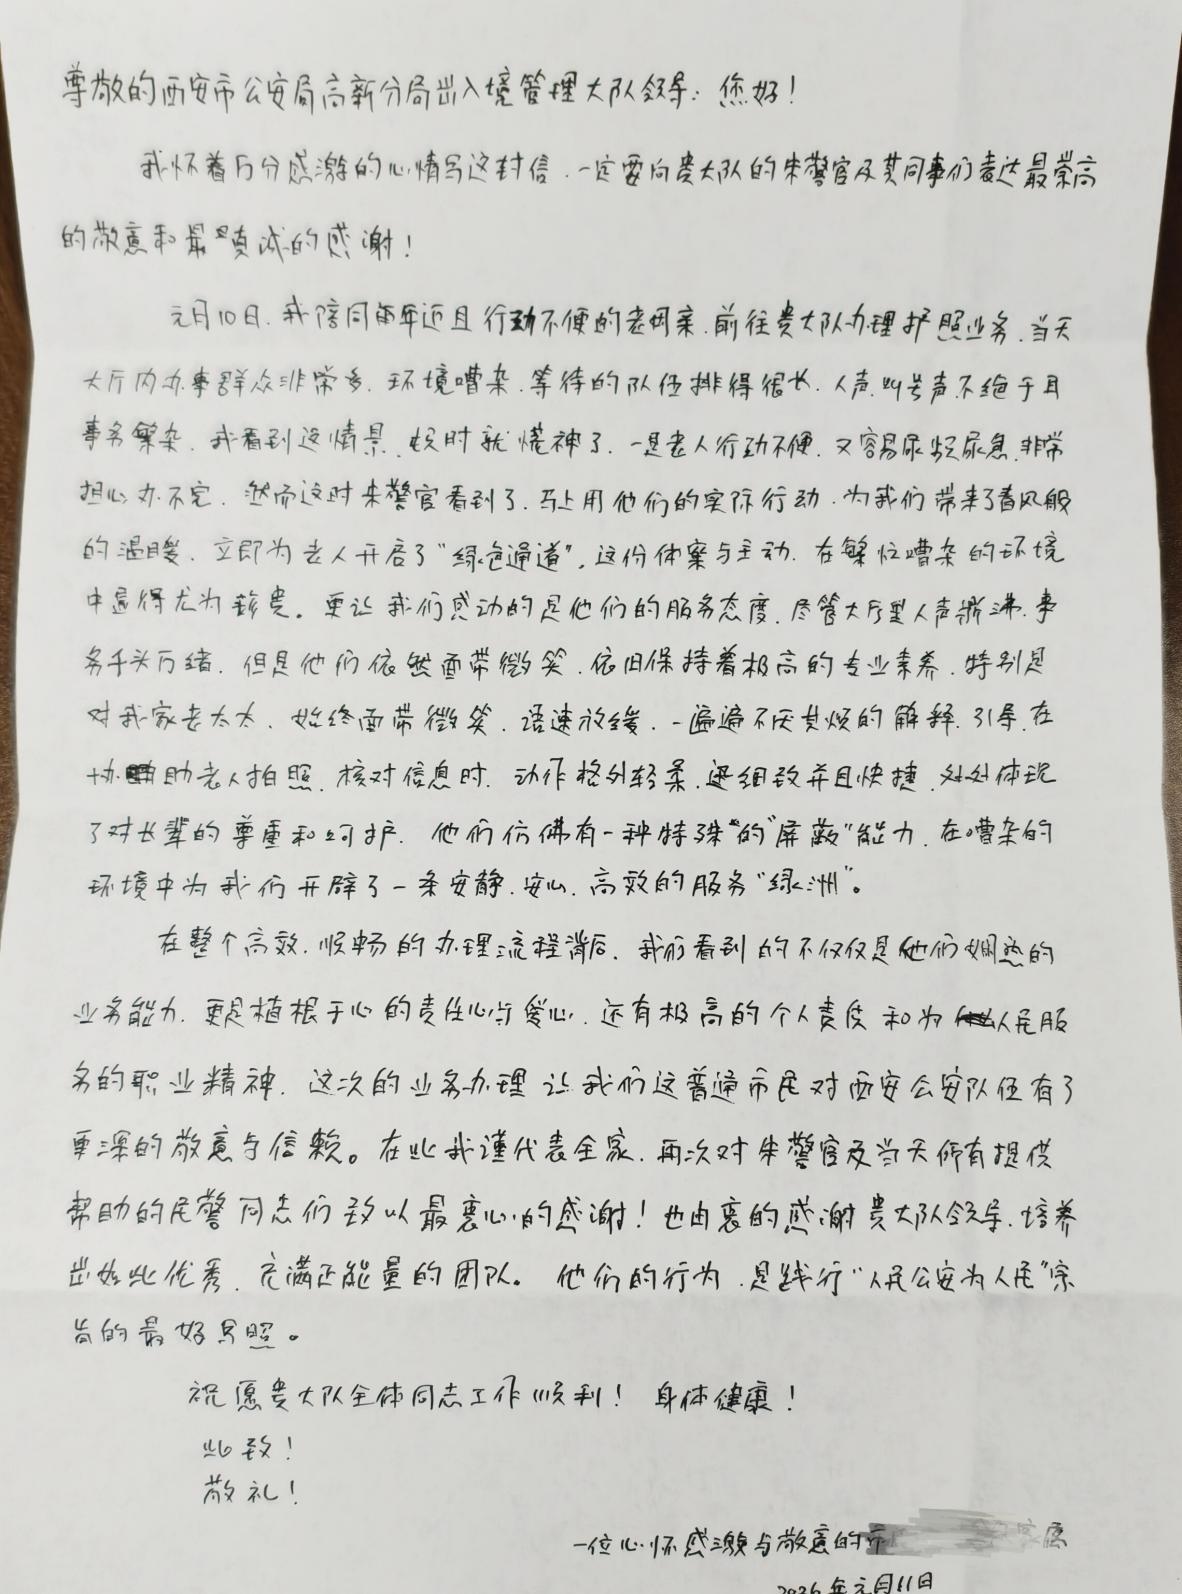 尊敬的西安市公安局高新分局出入境管理大队领导：您好！
我怀着万分感激的心情写这封信，一定要向贵大队的朱警官及其同事们表达最崇高
的敬意和最真诚的感谢！
元月10日，我陪同年近且行动不便的老母亲，前往贵大队办理护照业务，当天
大厅内办事群众非常多，环境嘈杂，等待的队伍排得很长，人声，叫号声不绝于耳
事务繁杂，我看到这情景，顿时就慌神了，一是老人行动不便，又容易尿频尿急，非常
担心办不完，然而这时朱警官看到了，马上用他们的实际行动，为我们带来了春风般
的温暖，立即为老人开启了“绿色通道”，这份体察与主动，在繁忙嘈杂的环境
中显得尤为珍贵。更让我们感动的是他们的服务态度，尽管大厅里人声鼎沸，事
务千头万绪，但是他们依然面带微笑，依旧保持着极高的专业素养，特别是
对我家老太太，始终面带微笑，语速放缓，一遍遍不厌其烦的解释，引导，在
协助老人拍照，核对信息时，动作格外轻柔，细致并且快捷，处处体现
了对长辈的尊重和呵护，他们仿佛有一种特殊的“屏蔽”能力，在嘈杂的
环境中为我们开辟了一条安静，安心，高效的服务“绿洲”。
在整个高效，顺畅的办理流程背后，我们看到的不仅仅是他们娴熟的
业务能力，更是植根于心的责任心与爱心，还有极高的个人责任和为人民服
务的职业精神，这次的业务办理让我们这普通市民对西安公安队伍有了
更深的敬意与信赖。在此我谨代表全家，再次对朱警官及当天所有提供
帮助的民警同志们致以最衷心的感谢！也由衷的感谢贵大队领导，培养
出如此优秀，充满正能量的团队。他们的行为，是践行“人民公安为人民”宗
旨的最好写照。
祝愿贵大队全体同志工作顺利！身体健康！
此致！
敬礼！
一位心怀感激与敬意的市 家属
2026年元月11日